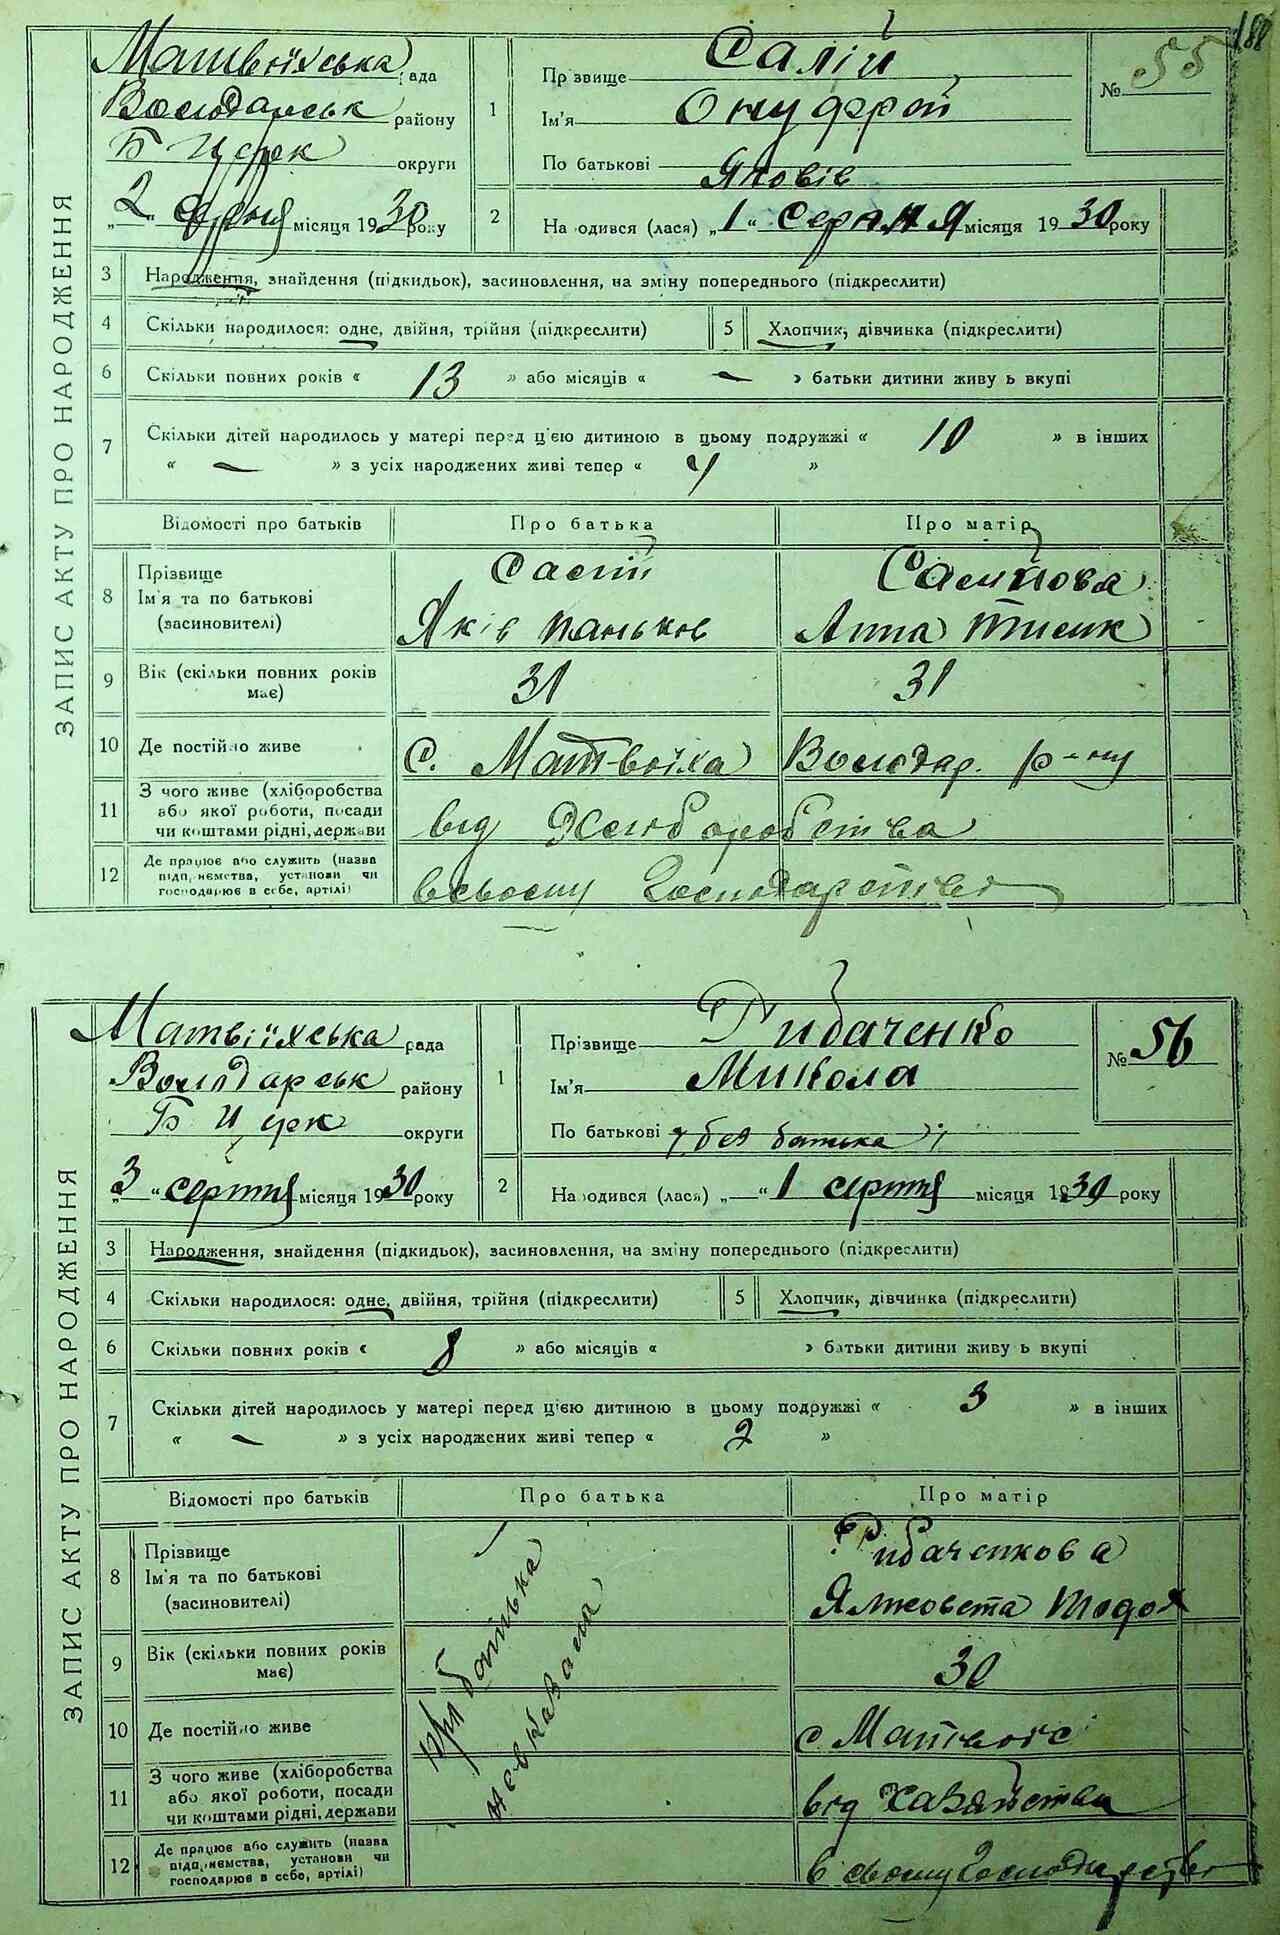 188
Матвіїхська рада
Володарськ району
Б Церк округи
„2“ серпня місяця 1930 року
1
Прізвище Салій
Ім'я Онуфрій
По батькові Яковів
№ 55
2
Народився (лася) „1“ серпня місяця 1930 року
ЗАПИС АКТУ ПРО НАРОДЖЕННЯ
3 Народження, знайдення (підкидьок), засиновлення, на зміну попереднього (підкреслити)
4 Скільки народилося: одне, двійня, трійня (підкреслити) 5 Хлопчик, дівчинка (підкреслити)
6 Скільки повних років « 13 » або місяців « – » батьки дитини живуть вкупі
7 Скільки дітей народилось у матері перед цією дитиною в цьому подружжі « 10 » в інших
« – » з усіх народжених живі тепер « 4 »
Відомості про батьків Про батька Про матір
8 Прізвище
Ім'я та по батькові
(засиновителі)
Салій
Яків Паньков
Салійова
Анна
9 Вік (скільки повних років має) 31 31
10 Де постійно живе с. Матвіїха Володар. р-ну
11 З чого живе (хліборобства
або якої роботи, посади
чи коштами рідні, держави
від Хліборобства
12 Де працює або служить (назва
підприємства, установи чи
господарює в себе, артілі)
в своєму Господарстві
Матвіїхська рада
Володарськ району
Б Церк округи
„3“ серпня місяця 1930 року
1
Прізвище Рибаченко
Ім'я Микола
По батькові без батька
№ 56
2
Народився (лася) „ “ 1 серпня місяця 1930 року
ЗАПИС АКТУ ПРО НАРОДЖЕННЯ
3 Народження, знайдення (підкидьок), засиновлення, на зміну попереднього (підкреслити)
4 Скільки народилося: одне, двійня, трійня (підкреслити) 5 Хлопчик, дівчинка (підкреслити)
6 Скільки повних років « 8 » або місяців « » батьки дитини живуть вкупі
7 Скільки дітей народилось у матері перед цією дитиною в цьому подружжі « 3 » в інших
« – » з усіх народжених живі тепер « 2 »
Відомості про батьків Про батька Про матір
8 Прізвище
Ім'я та по батькові
(засиновителі)
про батька
не вказала
Рибаченкова
Ялисовета Тодох
9 Вік (скільки повних років має) 30
10 Де постійно живе с Матвіїхі
11 З чого живе (хліборобства
або якої роботи, посади
чи коштами рідні, держави
від хазяйства
12 Де працює або служить (назва
підприємства, установи чи
господарює в себе, артілі)
в своєму Господарстві